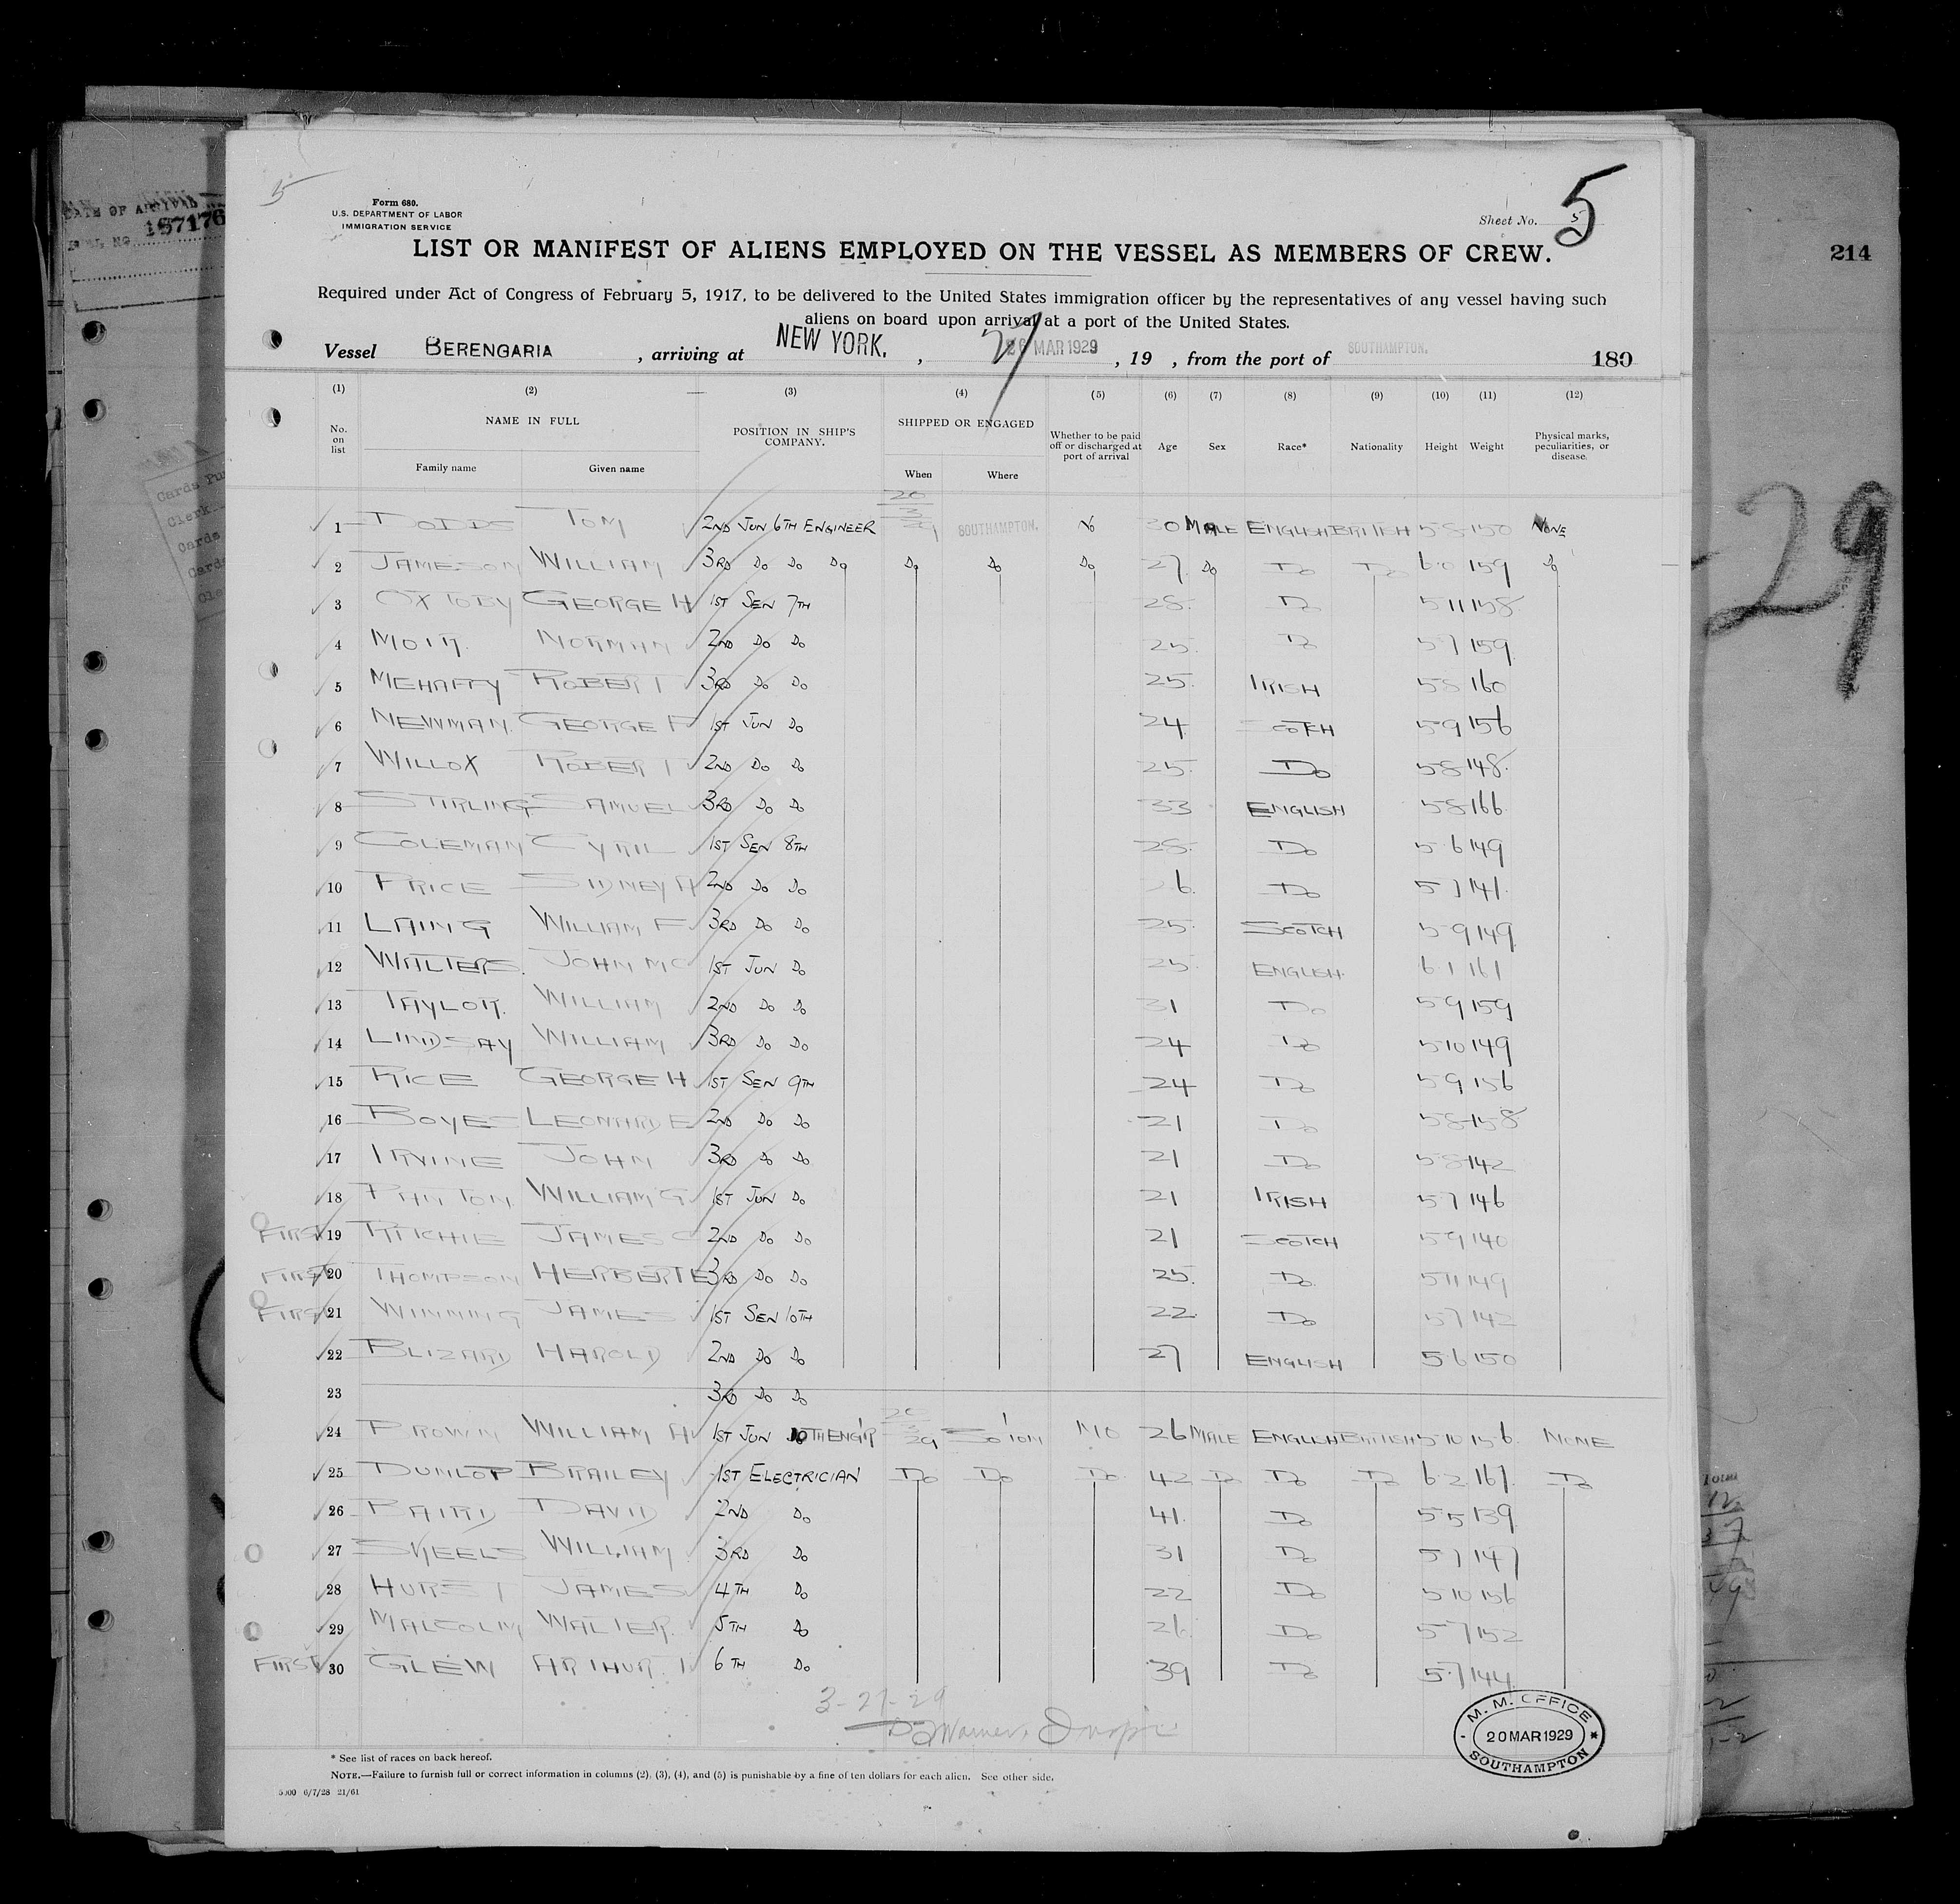 5
5
Form 680.
U.S. DEPARTMENT OF LABOR
IMMIGRATION SERVICE
Sheet No. 5
LIST OR MANIFEST OF ALIENS EMPLOYED ON THE VESSEL AS MEMBERS OF CREW.
Required under Act of Congress of February 5, 1917, to be delivered to the United States immigration officer by the representatives of any vessel having such
aliens on board upon arrival at a port of the United States.
Vessel BERENGARIA , arriving at NEW YORK. , 27 26 MAR 1929 , 19 , from the port of SOUTHAMPTON. 180
DATE OF ARRIVAL
187176
214
29
(1) (2) (3) (4) (5) (6) (7) (8) (9) (10) (11) (12)
No. on list NAME IN FULL POSITION IN SHIP'S COMPANY. SHIPPED OR ENGAGED Whether to be paid off or discharged at port of arrival Age Sex Race* Nationality Height Weight Physical marks, peculiarities, or disease.
Family name Given name When Where
1 DODDS TOM 2ND JUN 6TH ENGINEER 20 3 29 SOUTHAMPTON. NO 30 MALE ENGLISH BRITISH 5 8 150 NONE
2 JAMESON WILLIAM 3RD DO DO DO DO DO DO 27 DO DO DO 6 0 159 DO
3 OXTOBY GEORGE H 1ST SEN 7TH 28 DO 5 11 158
4 MOIR. NORMAN 2ND DO DO 25 DO 5 7 159
5 MEHAFFY ROBERT 3RD DO DO 25 IRISH 5 8 160
6 NEWMAN. GEORGE F 1ST JUN DO 24 SCOTCH 5 9 156
7 WILLOX ROBERT 2ND DO DO 25 DO 5 8 148
8 STIRLING SAMUEL 3RD DO DO 33 ENGLISH 5 8 166
9 COLEMAN CYRIL 1ST SEN 8TH 28 DO 5 6 149
10 PRICE SIDNEY A 2ND DO DO 26 DO 5 7 141
11 LAING WILLIAM F 3RD DO DO 25 SCOTCH 5 9 149
12 WALTERS. JOHN MC 1ST JUN DO 25 ENGLISH 6 1 161
13 TAYLOR. WILLIAM 2ND DO DO 31 DO 5 9 159
14 LINDSAY WILLIAM 3RD DO DO 24 DO 5 10 149
15 RICE GEORGE H 1ST SEN 9TH 24 DO 5 9 156
16 BOYES LEONARD E 2ND DO DO 21 DO 5 8 158
17 IRVINE JOHN 3RD DO DO 21 DO 5 8 142
18 PANTON WILLIAM G 1ST JUN DO 21 IRISH 5 7 146
FIRST 19 RITCHIE JAMES C 2ND DO DO 21 SCOTCH 5 9 140
FIRST 20 THOMPSON HERBERT E 3RD DO DO 25 DO 5 11 149
FIRST 21 WINNING JAMES 1ST SEN 10TH 22 DO 5 7 142
22 BLIZARD HAROLD 2ND DO DO 27 ENGLISH 5 6 150
23 3RD DO DO
24 BROWN WILLIAM A 1ST JUN 10TH ENG'R 20 3 29 SO'TON NO 26 MALE ENGLISH BRITISH 5 10 156 NONE
25 DUNLOP BRAILEY 1ST ELECTRICIAN DO DO DO 42 DO DO DO 6 2 167 DO
26 BAIRD DAVID 2ND DO 41 DO 5 5 139
27 SKEELS WILLIAM 3RD DO 31 DO 5 7 147
28 HURST JAMES 4TH DO 22 DO 5 10 156
29 MALCOLM WALTER 5TH DO 26 DO 5 7 152
FIRST 30 GLEW ARTHUR 6TH DO 39 DO 5 7 144
3-27-29
M. M. OFFICE
20 MAR 1929
SOUTHAMPTON
* See list of races on back hereof.
NOTE.—Failure to furnish full or correct information in columns (2), (3), (4), and (5) is punishable by a fine of ten dollars for each alien. See other side.
5000 6/7/28 21/61